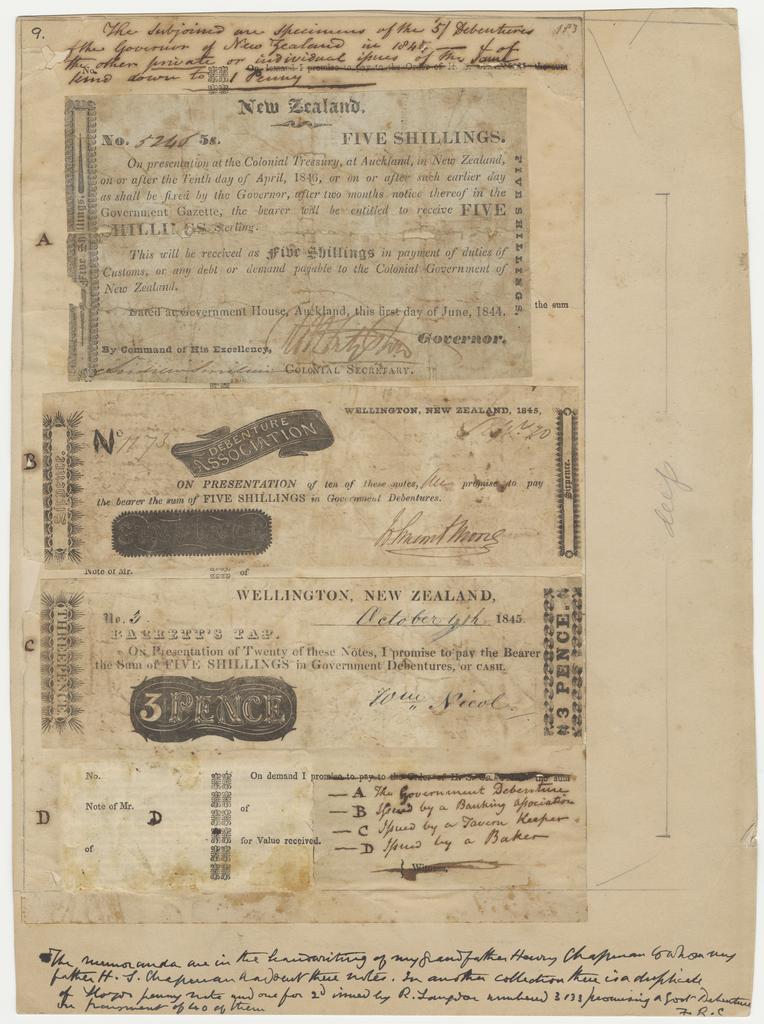 9.
The subjoined are specimens of the 5/ Debentures
of the Governor of New Zealand in 1845, & of
the other private or individual issues of the same
kind down to 1 Penny
No. On demand I promise to pay to the Order of H. the sum
New Zealand.
No. 5246 5s. FIVE SHILLINGS.
On presentation at the Colonial Treasury, at Auckland, in New Zealand,
on or after the Tenth day of April, 1846, or on or after such earlier day
as shall be fixed by the Governor, after two months notice thereof in the
Government Gazette, the bearer will be entitled to receive FIVE
SHILLINGS Sterling.
This will be received as Five Shillings in payment of duties of
Customs, or any debt or demand payable to the Colonial Government of
New Zealand.
Dated at Government House, Auckland, this first day of June, 1844.
Governor.
By Command of His Excellency,
COLONIAL SECRETARY.
Five Shillings.
FIVE SHILLINGS.
the sum
A
B
WELLINGTON, NEW ZEALAND, 1845,
No 1173
DEBENTURE
ASSOCIATION
ON PRESENTATION of ten of these notes, we promise to pay
the bearer the sum of FIVE SHILLINGS in Government Debentures.
Sixpence.
Note of Mr. of
C
WELLINGTON, NEW ZEALAND,
No. 3. October 9th 1845.
BARRETT'S TAP.
On Presentation of Twenty of these Notes, I promise to pay the Bearer
the Sum of FIVE SHILLINGS in Government Debentures, or CASH.
3 PENCE
Wm Nicol
THREEPENCE.
3 PENCE.
D
No. On demand I promise to pay to the Order of H. S. the sum
Note of Mr. D of
of for Value received.
— A The Government Debenture
— B Issued by a Banking Association
— C Issued by a Tavern Keeper
— D Issued by a Baker
Witness,
deep
The memoranda are in the handwriting of my grandfather Henry Chapman to whom my
father H. S. Chapman had sent these notes. In another collection there is a duplicate
of penny note and one for 2d issued by R. Langdon numbered 3133 promising a Govt Debenture
in payment of 40 of them
F. R. C